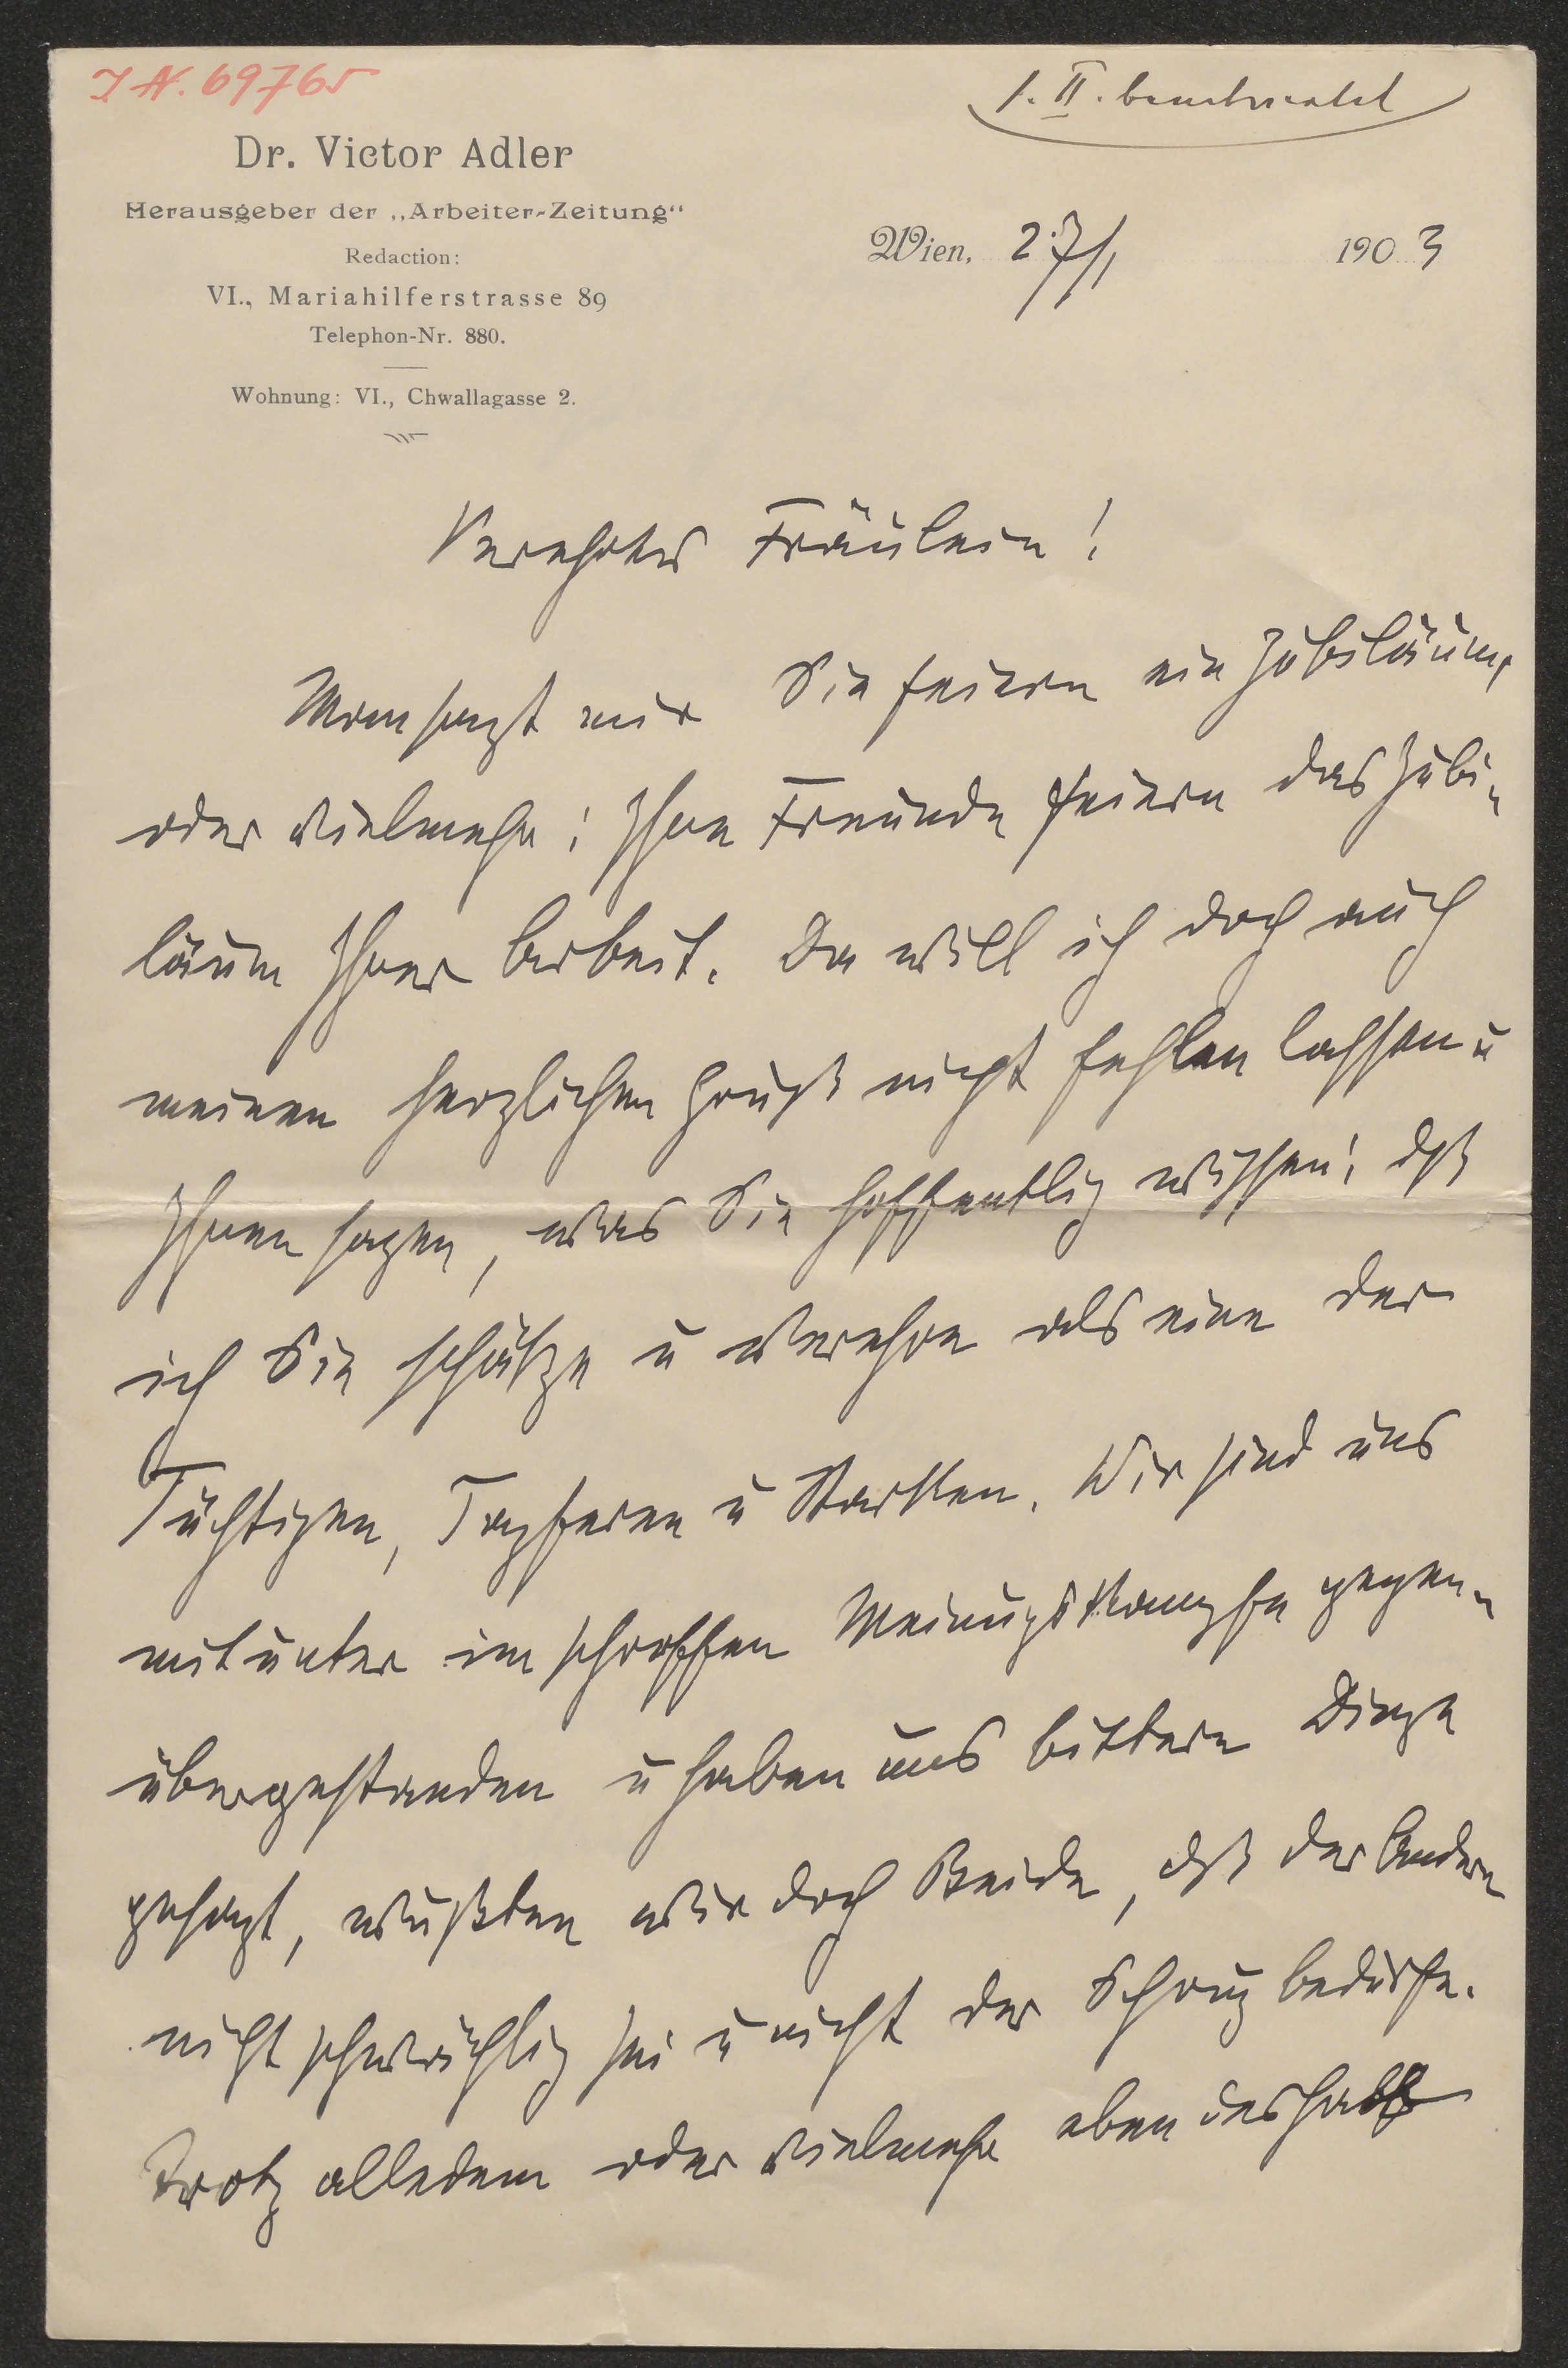 I.N. 69765
1. II. beantwortet
Dr. Victor Adler
Herausgeber der „Arbeiter-Zeitung“
Redaction:
VI., Mariahilferstrasse 89
Telephon-Nr. 880.
Wohnung: VI., Chwallagasse 2.
Wien, 27/1 1903
Verehrtes Fräulein!
Man sagt mir Sie feiern ein Jubiläum,
oder vielmehr: Ihre Freunde feiern das Jubi-
läum Ihrer Arbeit. Da will ich doch auch
meinen herzlichen Gruß nicht fehlen lassen u
Ihnen sagen, was Sie hoffentlich wissen: dß
ich Sie schätze u verehre als eine der
Tüchtigen, Tapferen u Starken. Wir sind uns
mitunter im schroffen Meinugskampfe gegen-
übergestanden u haben uns bittere Dinge
gesagt, wußten wir doch Beide, dß der Andere
nicht schwächlich sei u nicht der Schonug bedürfe.
Trotz alledem oder vielmehr eben deshalb